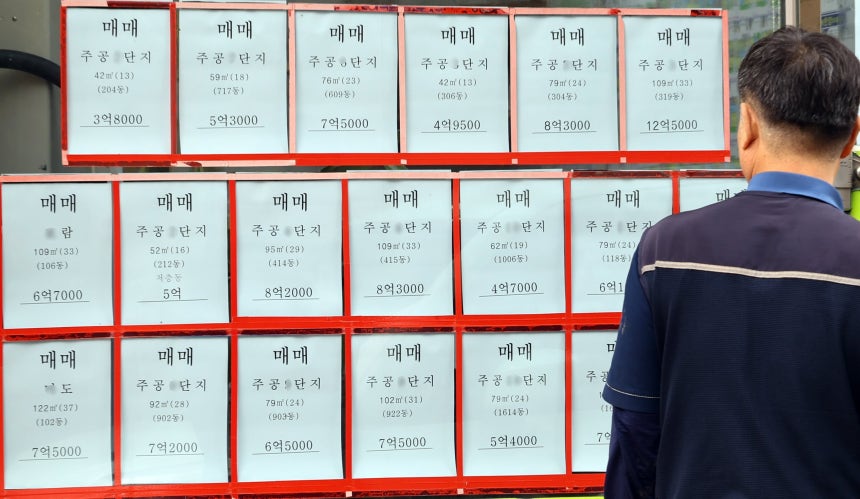 매매
주공 단지
42㎡(13)
(204동)
3억8000
매매
주공 단지
59㎡(18)
(717동)
5억3000
매매
주공 단지
76㎡(23)
(609동)
7억5000
매매
주공 단지
42㎡(13)
(306동)
4억9500
매매
주공 단지
79㎡(24)
(304동)
8억3000
매매
주공 단지
109㎡(33)
(319동)
12억5000
매매
람
109㎡(33)
(106동)
6억7000
매매
주공 단지
52㎡(16)
(212동)
저층동
5억
매매
주공 단지
95㎡(29)
(414동)
8억2000
매매
주공 단지
109㎡(33)
(415동)
8억3000
매매
주공 단지
62㎡(19)
(1006동)
4억7000
매매
주공 단지
79㎡(24)
(118동)
6억1
매매
매매
도
122㎡(37)
(102동)
7억5000
매매
주공 단지
92㎡(28)
(902동)
7억2000
매매
주공 단지
79㎡(24)
(903동)
6억5000
매매
주공 단지
102㎡(31)
(922동)
7억5000
매매
주공 단지
79㎡(24)
(1614동)
5억4000
매매
주공
79㎡
7억